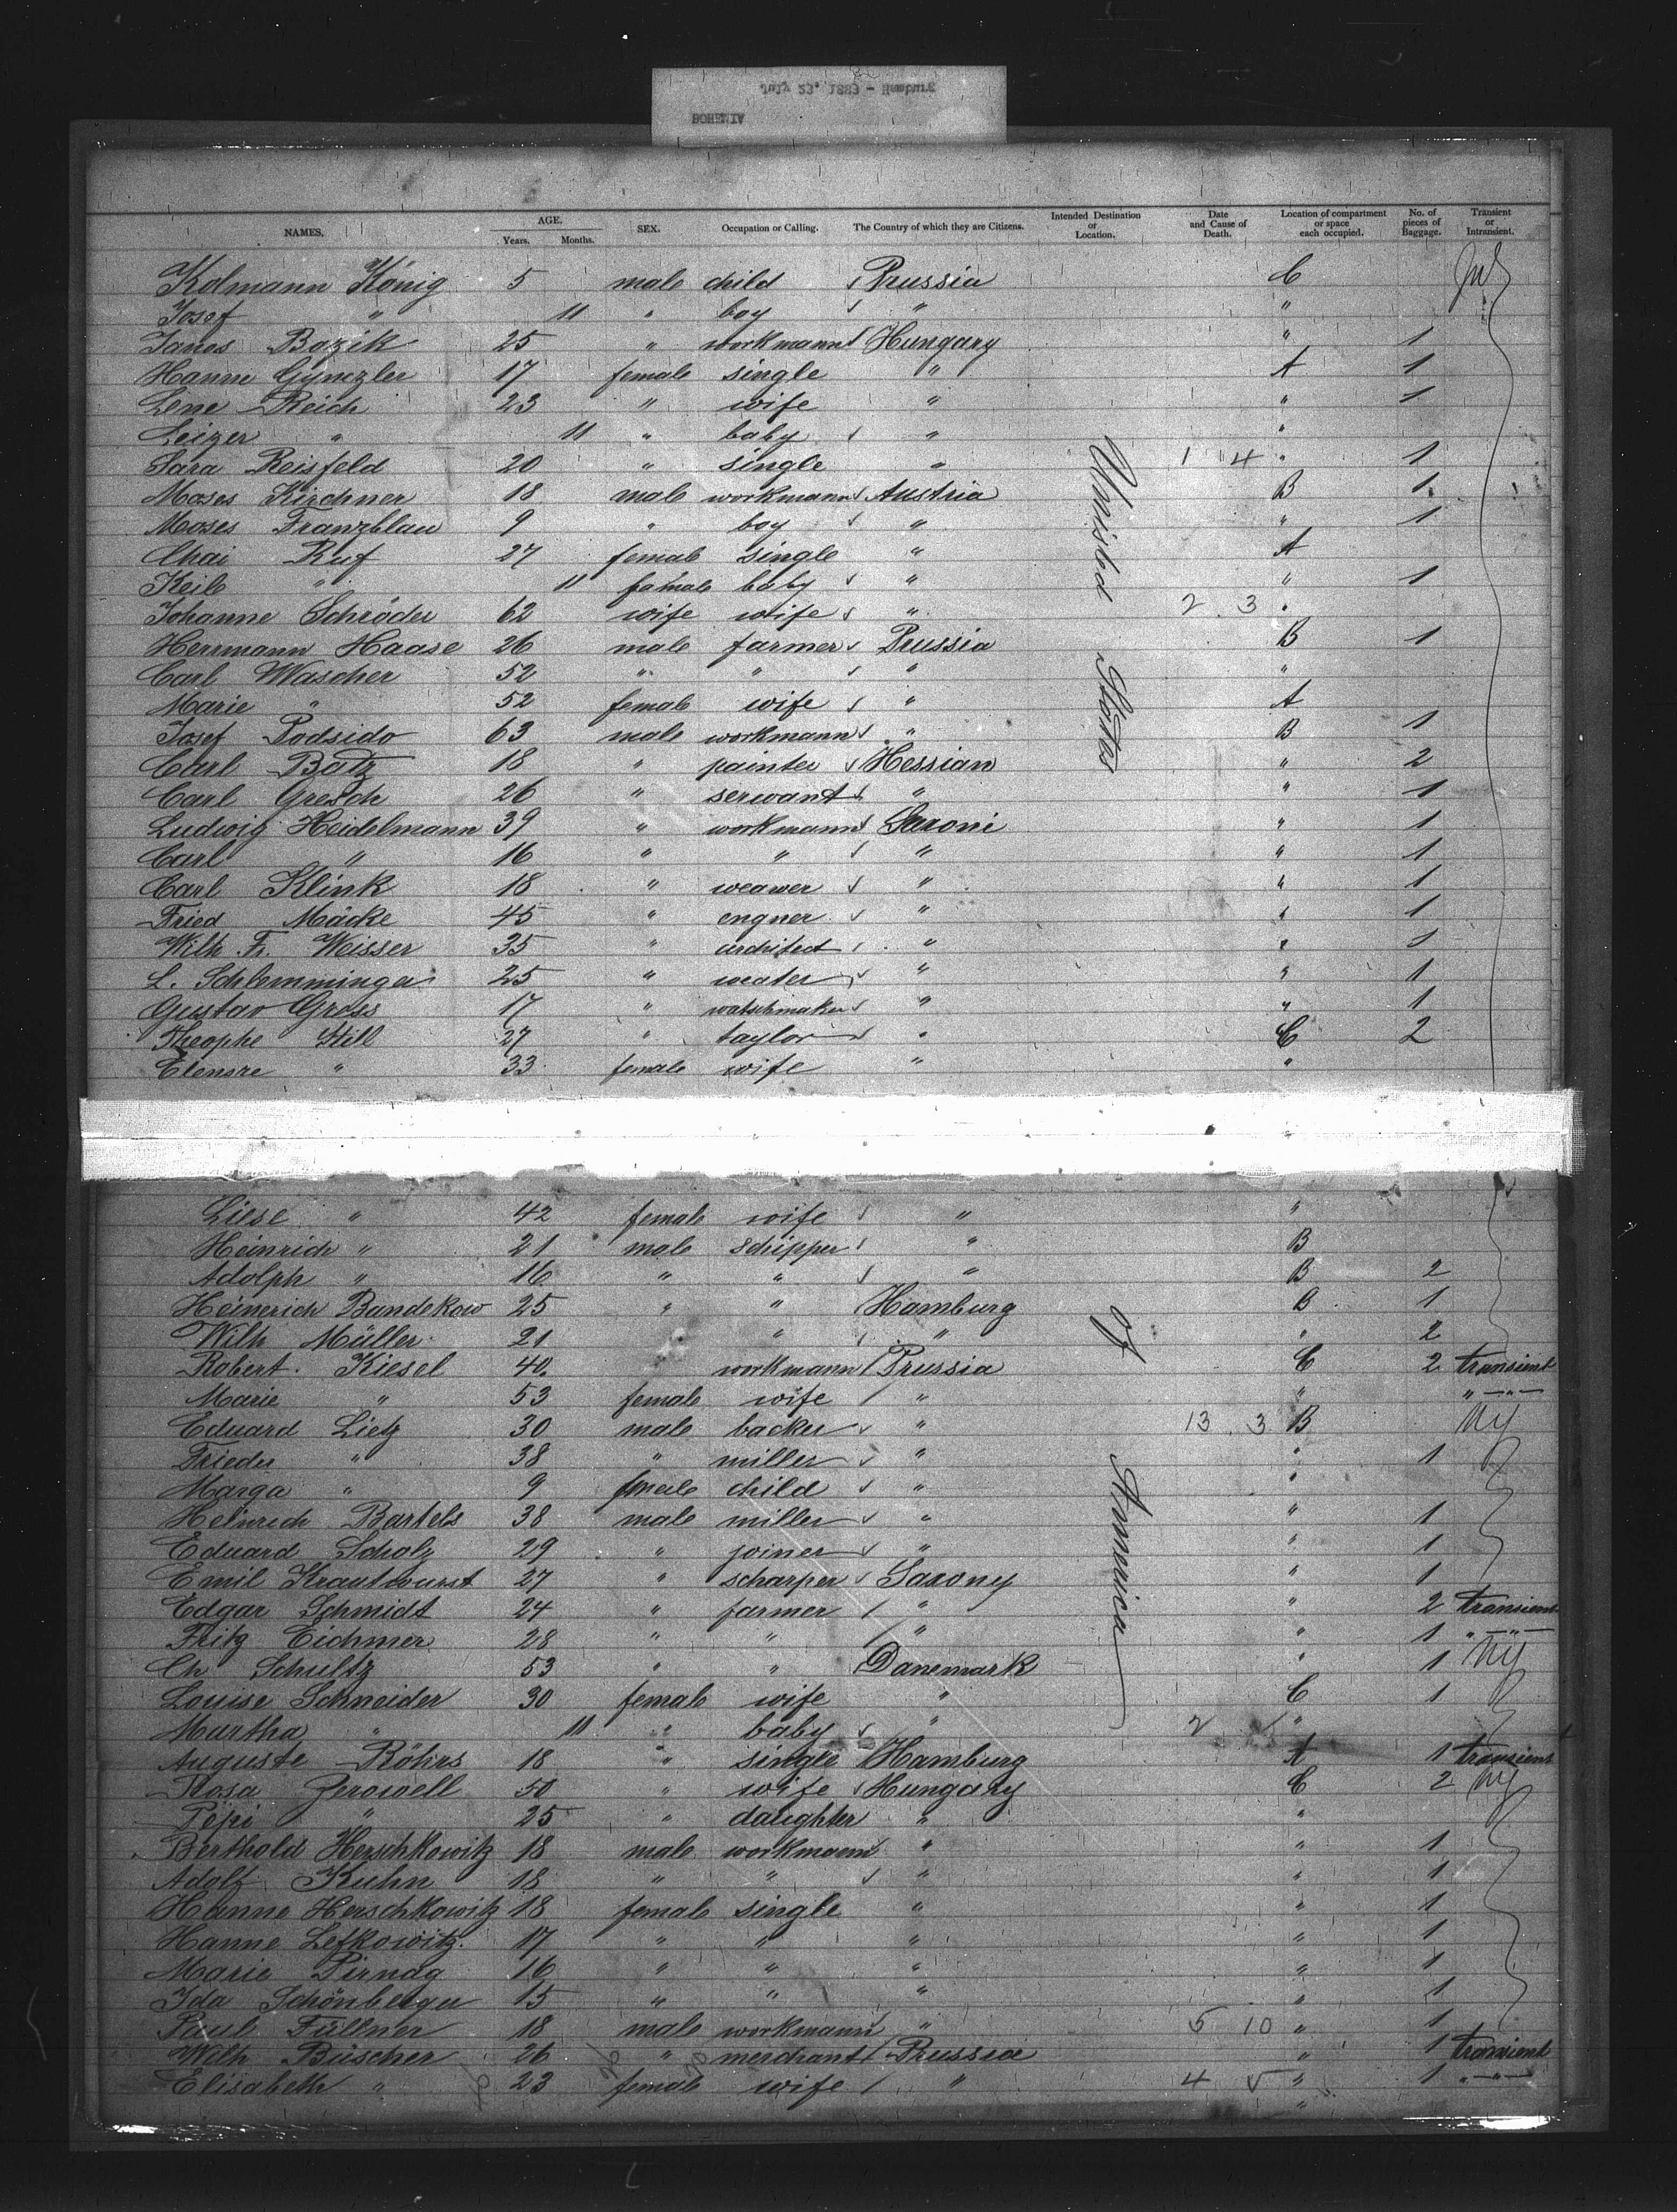 July 23, 1883 - Hamburg
BOHEMIA
NAMES. AGE. Years. Months. SEX. Occupation or Calling. The Country of which they are Citizens. Intended Destination or Location. Date and Cause of Death. Location of compartment or space each occupied. No. of pieces of Baggage. Transient or Intransient.
Kolmann König 5 male child Prussia C
Josef " 11 " boy " "
Janos Bazik 25 " workmann Hungary " 1
Hanne Gynczler 17 female single " A 1
Lene Reich 23 " wife " " 1
Leizer " 11 " baby " "
Sara Reisfeld 20 " single " 1 4 " 1
Moses Kirchner 18 male workmann Austria B 1
Moses Franzblau 9 " boy " " 1
Chai Ruf 27 female single " A
Keile " 11 female baby " " 1
Johanne Schröder 62 wife wife " 2 3 "
Herrmann Haase 26 male farmer Prussia B 1
Carl Wascher 52 " " " "
Marie " 52 female wife " A
Josef Podsido 63 male workmann " B 1
Carl Batz 18 " painter Hessian " 2
Carl Gresch 26 " serwant " " 1
Ludwig Heidelmann 39 " workmann Saxoni " 1
Carl " 16 " " " " 1
Carl Klink 18 " weawer " " 1
Fried Mäcke 45 " engner " " 1
Wilh. Fr. Weisser 35 " architect " " 1
L. Schlemminger 25 " weater " " 1
Gustav Gross 17 " watschmaker " " 1
Theophe Hill 27 " taylor " C 2
Elenore " 33 female wife " "
United States
Liese " 42 female wife " "
Heinrich " 21 male schipper " B
Adolph " 16 " " " B 2
Heinrich Bandekow 25 " " Hamburg B 1
Wilh Müller 21 " " " 2
Robert Kiesel 40 workmann Prussia C 2 transient
Marie " 53 female wife " " "-"-
Eduard Lietz 30 male backer " 13 3 B NY
Frieder " 38 " miller " " 1
Marga " 9 female child " "
Heinrich Bartels 38 male miller " " 1
Eduard Scholz 29 " joiner " " 1
Emil Krautwurst 27 " scharper Saxony " 1
Edgar Schmidt 24 " farmer " " 2 transient
Fritz Eichmer 28 " " " " 1 "-"-
Ch Schultz 53 " " Danemark " 1 NY
Louise Schneider 30 female wife " C 1
Martha " 11 " baby " 2 "
Auguste Röhrs 18 " single Hamburg A 1 transient
Rosa Zerowell 50 " wife Hungary C 2 NY
Pepi " 25 " daughter " "
Berthold Herschkowitz 18 male workmann " " 1
Adolf Kuhn 18 " " " " 1
Hanne Herschkowitz 18 female single " " 1
Hanne Lefkowitz 17 " " " " 1
Marie Pirnag 16 " " " " 1
Ida Schönberger 15 " " " " 1
Paul Füllner 18 male workmann " 5 10 " 1
Wilh Büscher 26 " merchant Prussia " 1 transient
Elisabeth " 23 female wife " 4 5 " 1 "-"-
of America